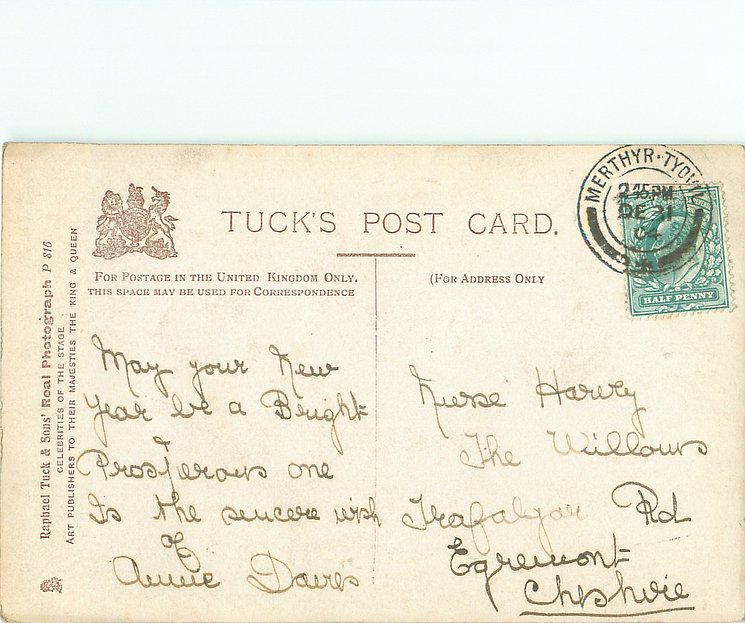 TUCK'S POST CARD.
FOR POSTAGE IN THE UNITED KINGDOM ONLY.
THIS SPACE MAY BE USED FOR CORRESPONDENCE
(FOR ADDRESS ONLY
MERTHYR·TYDFIL
2 45 PM
DE 31
04
HALF PENNY
Raphael Tuck & Sons' Real Photograph P 816
CELEBRITIES OF THE STAGE.
ART PUBLISHERS TO THEIR MAJESTIES THE KING & QUEEN
May your New
Year be a Bright
&
Prosperous one
Is the sincere wish
of
Annie Davies
Nurse Harvey
The Willows
Trafalgar Rd
Egremont
Cheshire